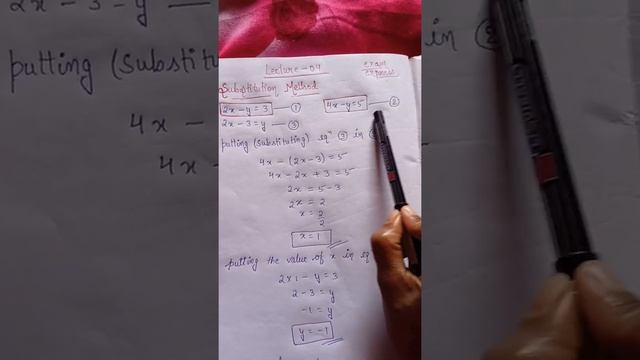 Lecture - 04
exam express
Substitution Method
2x - y = 3 — ① 4x - y = 5 — ②
2x - 3 = y — ③
putting (substituting) eqⁿ ③ in
4x - (2x - 3) = 5
4x - 2x + 3 = 5
2x = 5 - 3
2x = 2
x = 2/2
x = 1
putting the value of x in eq
2x1 - y = 3
2 - 3 = y
-1 = y
y = -1